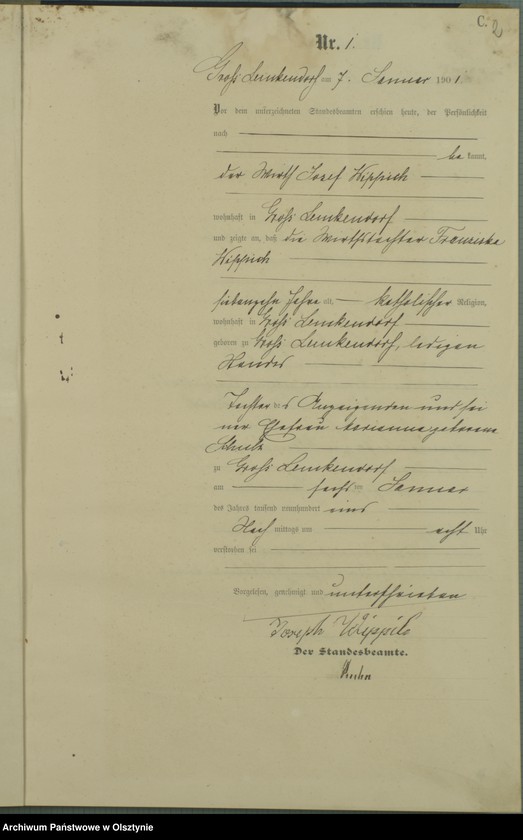 C. 2
Nr. 1.
Groß Lemkendorf am 7. Januar 1901
Vor dem unterzeichneten Standesbeamten erschien heute, der Persönlichkeit
nach
be kannt,
der Wirth Josef Wippich
wohnhaft in Groß Lemkendorf
und zeigte an, daß die Wirthstochter Franziska
Wippich
siebenzehn Jahre alt, katholischer Religion,
wohnhaft in Groß Lemkendorf
geboren zu Groß Lemkendorf, ledigen
Standes
Tochter des Anzeigenden und sei
ner Ehefrau Marianna geborene
zu Groß Lemkendorf
am sechs ten Januar
des Jahres tausend neunhundert eins
Nach mittags um acht Uhr
verstorben sei
Vorgelesen, genehmigt und unterschrieben
Joseph
Der Standesbeamte.